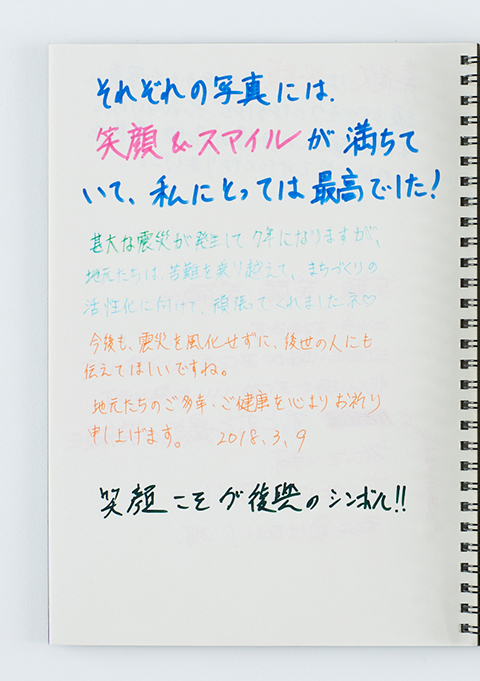 それぞれの写真には.
笑顔&スマイルが満ちて
いて、私にとっては最高でした!
甚大な震災が発生して7年になりますが、
地元たちは苦難を乗り越えて、まちづくりの
活性化に付けて、頑張ってくれましたネ♡
今後も、震災を風化せずに、後世の人にも
伝えてほしいですね。
地元たちのご多幸・ご健康を心よりお祈り
申し上げます。 2018.3.9
笑顔こそが復興のシンボル!!